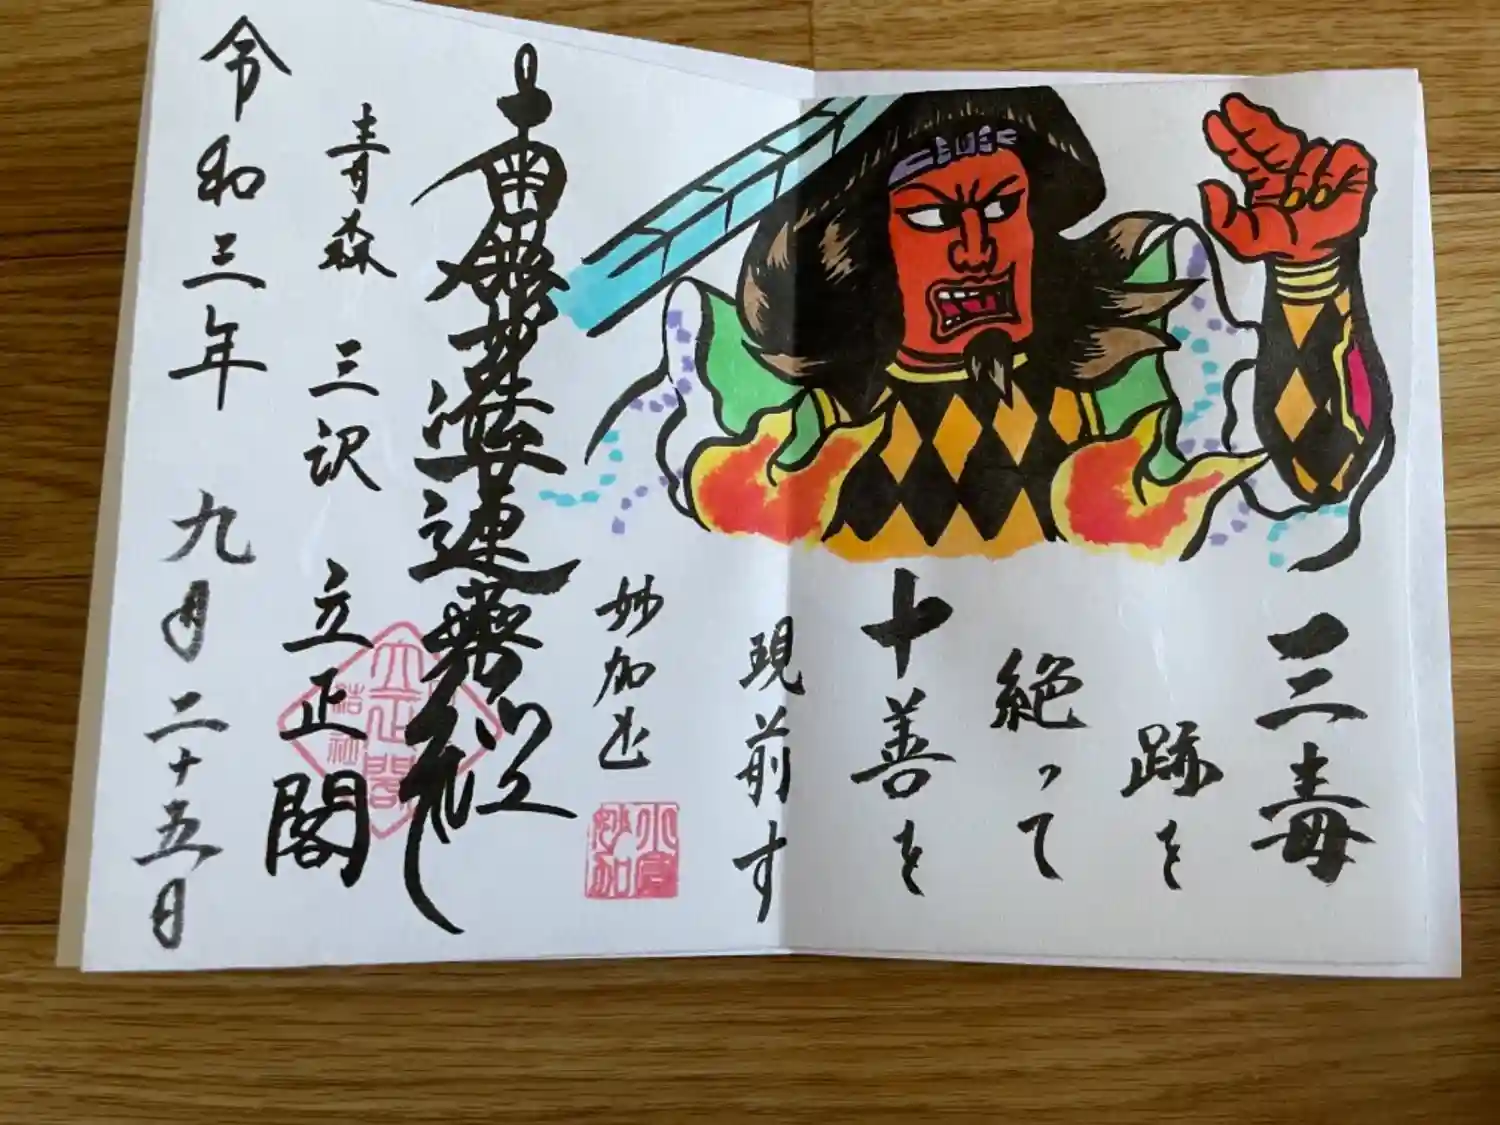 三毒
跡を
絶って
十善を
現前す
妙加
南無妙法蓮華経
青森 三沢 立正閣
令和三年 九月二十五日
立正閣
結社
小倉
妙加